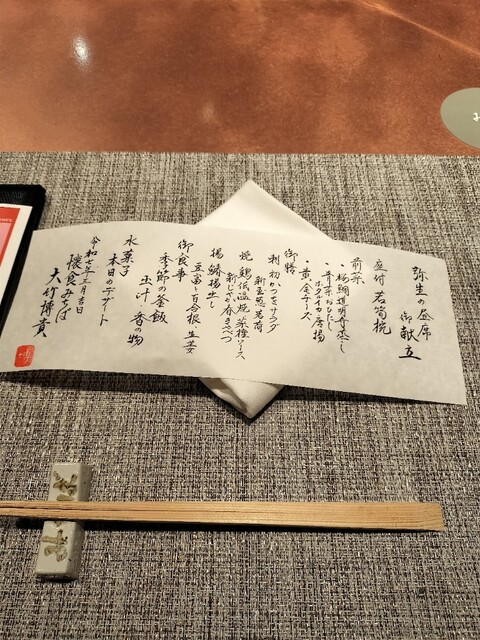 弥生の昼席
御献立
座付 若筍椀
前菜
・桜鯛道明寺蒸し
・青菜おひたし
ホタルイカ唐揚
・黄金チーズ
御膳
利 初かつをサラダ
新玉葱 茗荷
焼 鶏低温焼 菜種ソース
新じゃが 春きゃべつ
揚 鰆揚出し
豆富 百合根 生姜
御食事
季節の釜飯
玉汁 香の物
水菓子
本日のデザート
令和七年三月吉日
懐食みちば
大竹博貴